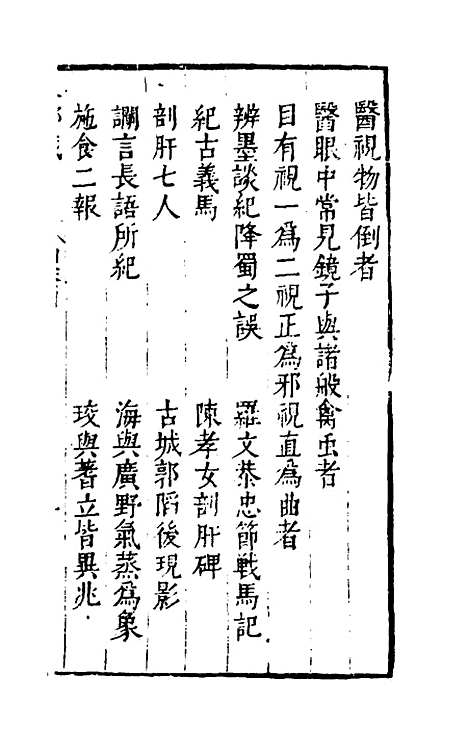 醫視物皆倒者
醫眼中常見鏡子與諸般禽虫者
目有視一爲二視正爲邪視直爲曲者
辨墨談紀降蜀之誤　羅文恭忠節戰馬記
紀古義馬　陳孝女剖肝碑
剖肝七人　古城郭陷後現影
讕言長語所紀　海與廣野氣蒸爲象
施食二報　琰與蓍立皆異兆